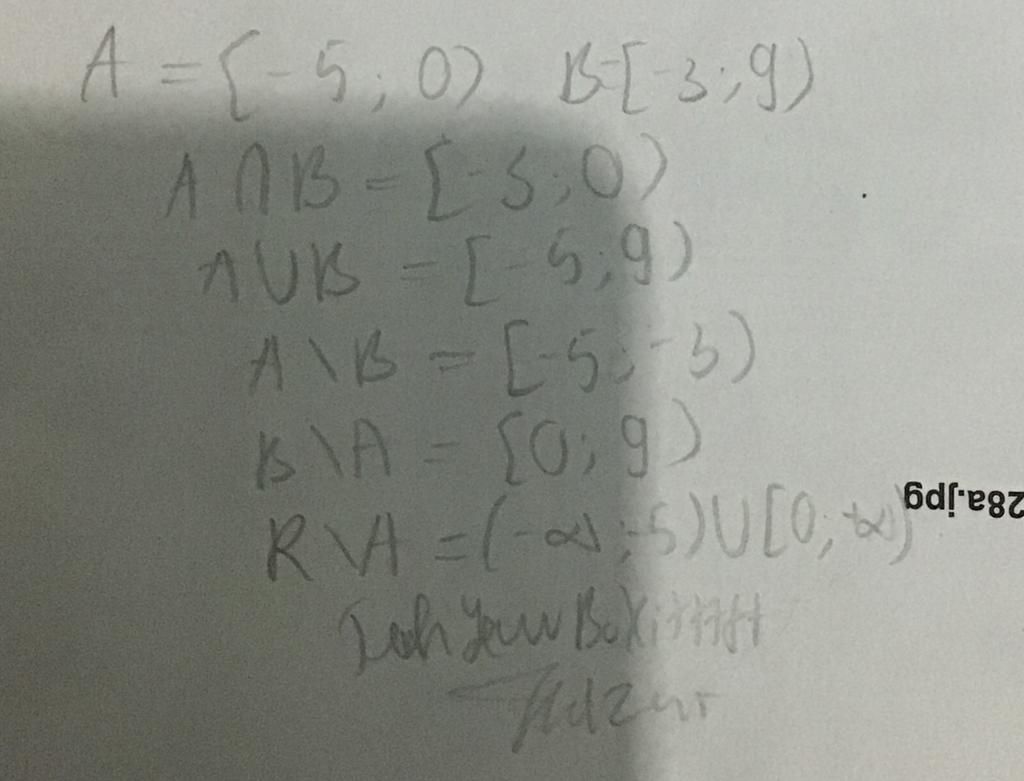 A = [-5; 0) B=[-3; 9)
A ∩ B = [-3; 0)
A ∪ B = [-5; 9)
A \ B = [-5; -3)
B \ A = [0; 9)
R \ A = (-∞; -5) ∪ [0; +∞)
28a.jpg